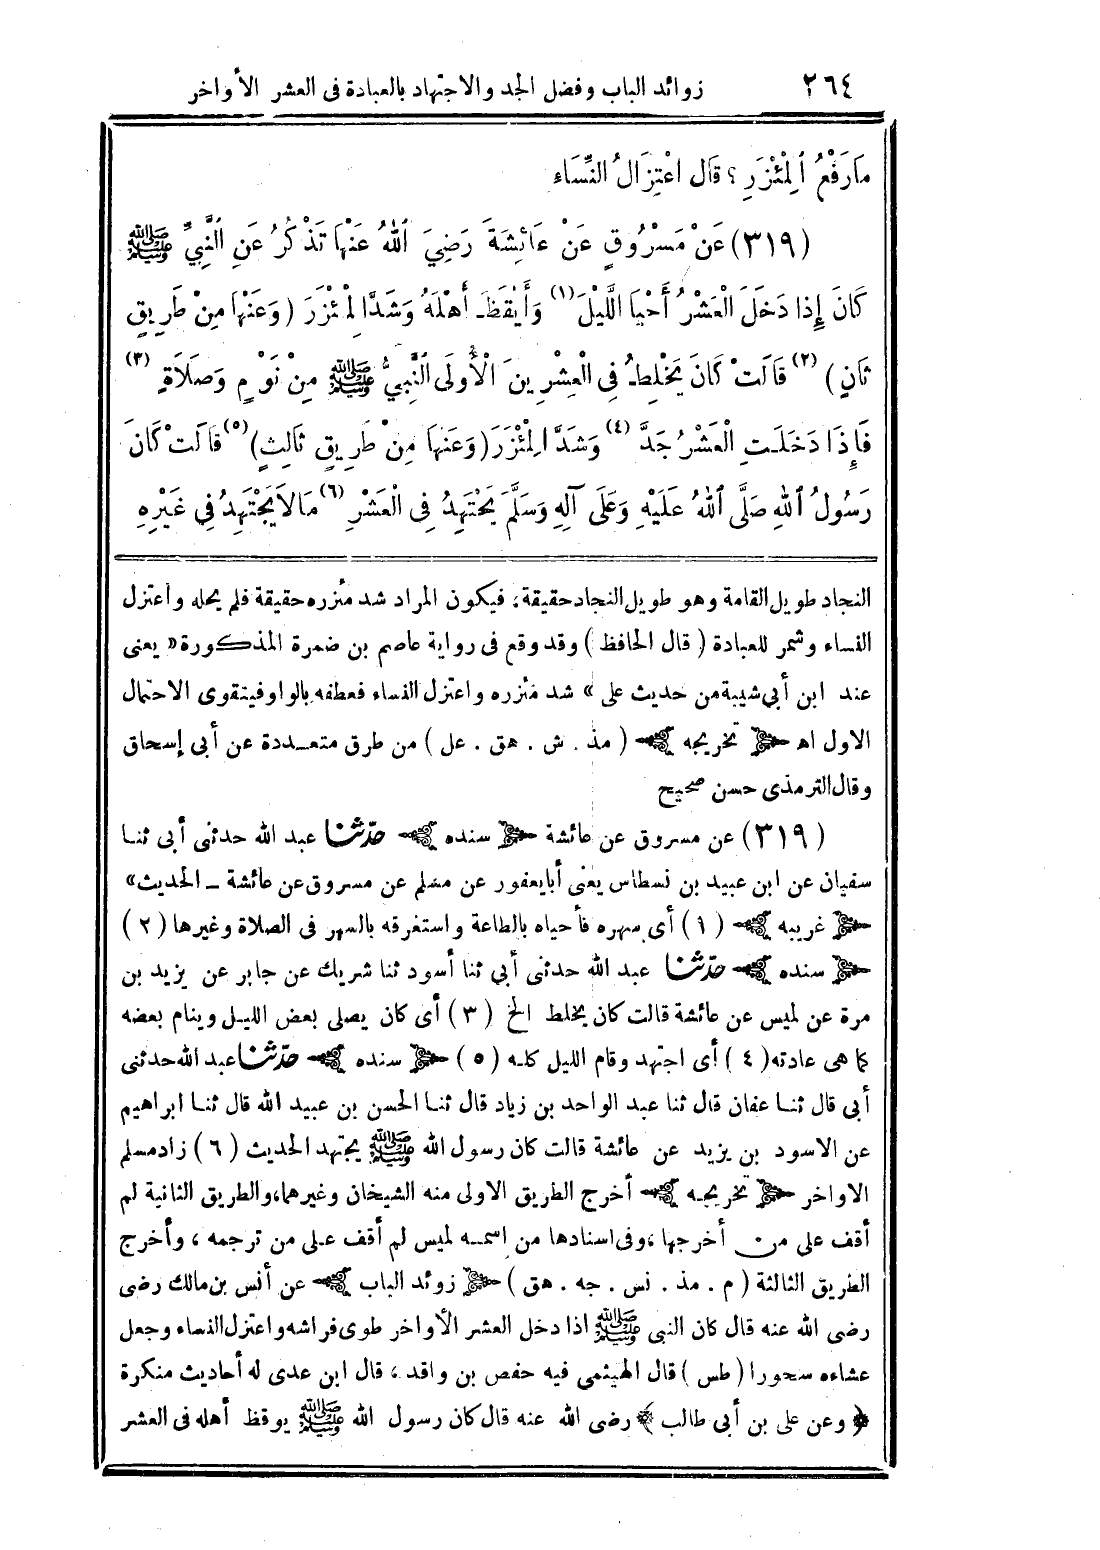 ٢٦٤ زوائد الباب وفضل الجد والاجتهاد بالعبادة فى العشر الأواخر
مَارَفْعُ الْمِئْزَرِ؟ قَالَ اعْتِزَالُ النِّسَاءِ
(٣١٩) عَنْ مَسْرُوقٍ عَنْ عَائِشَةَ رَضِيَ اللهُ عَنْهَا تَذْكُرُ عَنِ النَّبِيِّ ﷺ
كَانَ إِذَا دَخَلَ الْعَشْرُ أَحْيَا اللَّيْلَ (١) وَأَيْقَظَ أَهْلَهُ وَشَدَّ الْمِئْزَرَ (وَعَنْهَا مِنْ طَرِيقٍ
ثَانٍ) (٢) قَالَتْ كَانَ يَخْلِطُ فِي الْعِشْرِينَ الْأُولَى النَّبِيُّ ﷺ مِنْ نَوْمٍ وَصَلَاةٍ (٣)
فَإِذَا دَخَلَتِ الْعَشْرُ جَدَّ (٤) وَشَدَّ الْمِئْزَرَ (وَعَنْهَا مِنْ طَرِيقٍ ثَالِثٍ) (٥) قَالَتْ كَانَ
رَسُولُ اللهِ صَلَّى اللهُ عَلَيْهِ وَعَلَى آلِهِ وَسَلَّمَ يَجْتَهِدُ فِى الْعَشْرِ (٦) مَالَا يَجْتَهِدُ فِي غَيْرِهِ
النجاد طويل القامة وهو طويل النجاد حقيقة، فيكون المراد شد مئزره حقيقة فلم يحله واعتزل
النساء وشمر للعبادة ( قال الحافظ ) وقد وقع فى رواية عاصم بن ضمرة المذكورة « يعنى
عند ابن أبي شيبة من حديث على » شد مئزره واعتزل النساء فعطفه بالواو فيتقوى الاحتمال
الاول اهـ ﴿ تخريجه ﴾ ( مذ . ش . هق . عل ) من طرق متعددة عن أبى إسحاق
وقال الترمذى حسن صحيح
(٣١٩) عن مسروق عن عائشة ﴿ سنده ﴾ حدّثنا عبد الله حدثنى أبى ثنا
سفيان عن ابن عبيد بن نسطاس يعنى أبا يعفور عن مسلم عن مسروق عن عائشة ــ الحديث»
﴿ غريبه ﴾ (١) أى سهره فأحياه بالطاعة واستغرقه بالسهر فى الصلاة وغيرها (٢)
﴿ سنده ﴾ حدّثنا عبد الله حدثنى أبي ثنا أسود ثنا شريك عن جابر عن يزيد بن
مرة عن لميس عن عائشة قالت كان يخلط الخ (٣) أى كان يصلى بعض الليل وينام بعضه
كما هى عادته (٤) أى اجتهد وقام الليل كله (٥) ﴿ سنده ﴾ حدّثنا عبد الله حدثنى
أبى قال ثنا عفان قال ثنا عبد الواحد بن زياد قال ثنا الحسن بن عبيد الله قال ثنا ابراهيم
عن الاسود بن يزيد عن عائشة قالت كان رسول الله ﷺ يجتهد الحديث (٦) زاد مسلم
الاواخر ﴿ تخريجه ﴾ أخرج الطريق الاولى منه الشيخان وغيرهما، والطريق الثانية لم
أقف على من أخرجها، وفى اسنادها من اسمه لميس لم أقف على من ترجمه ، وأخرج
الطريق الثالثة ( م . مذ . نس . جه . هق ) ﴿ زوئد الباب ﴾ عن أنس بن مالك رضى
رضى الله عنه قال كان النبى ﷺ اذا دخل العشر الأواخر طوى فراشه واعتزل النساء وجعل
عشاءه سحورا ( طس ) قال الهيثمى فيه حفص بن واقد ، قال ابن عدى له أحاديث منكرة
﴿ وعن على بن أبى طالب ﴾ رضى الله عنه قال كان رسول الله ﷺ يوقظ أهله فى العشر